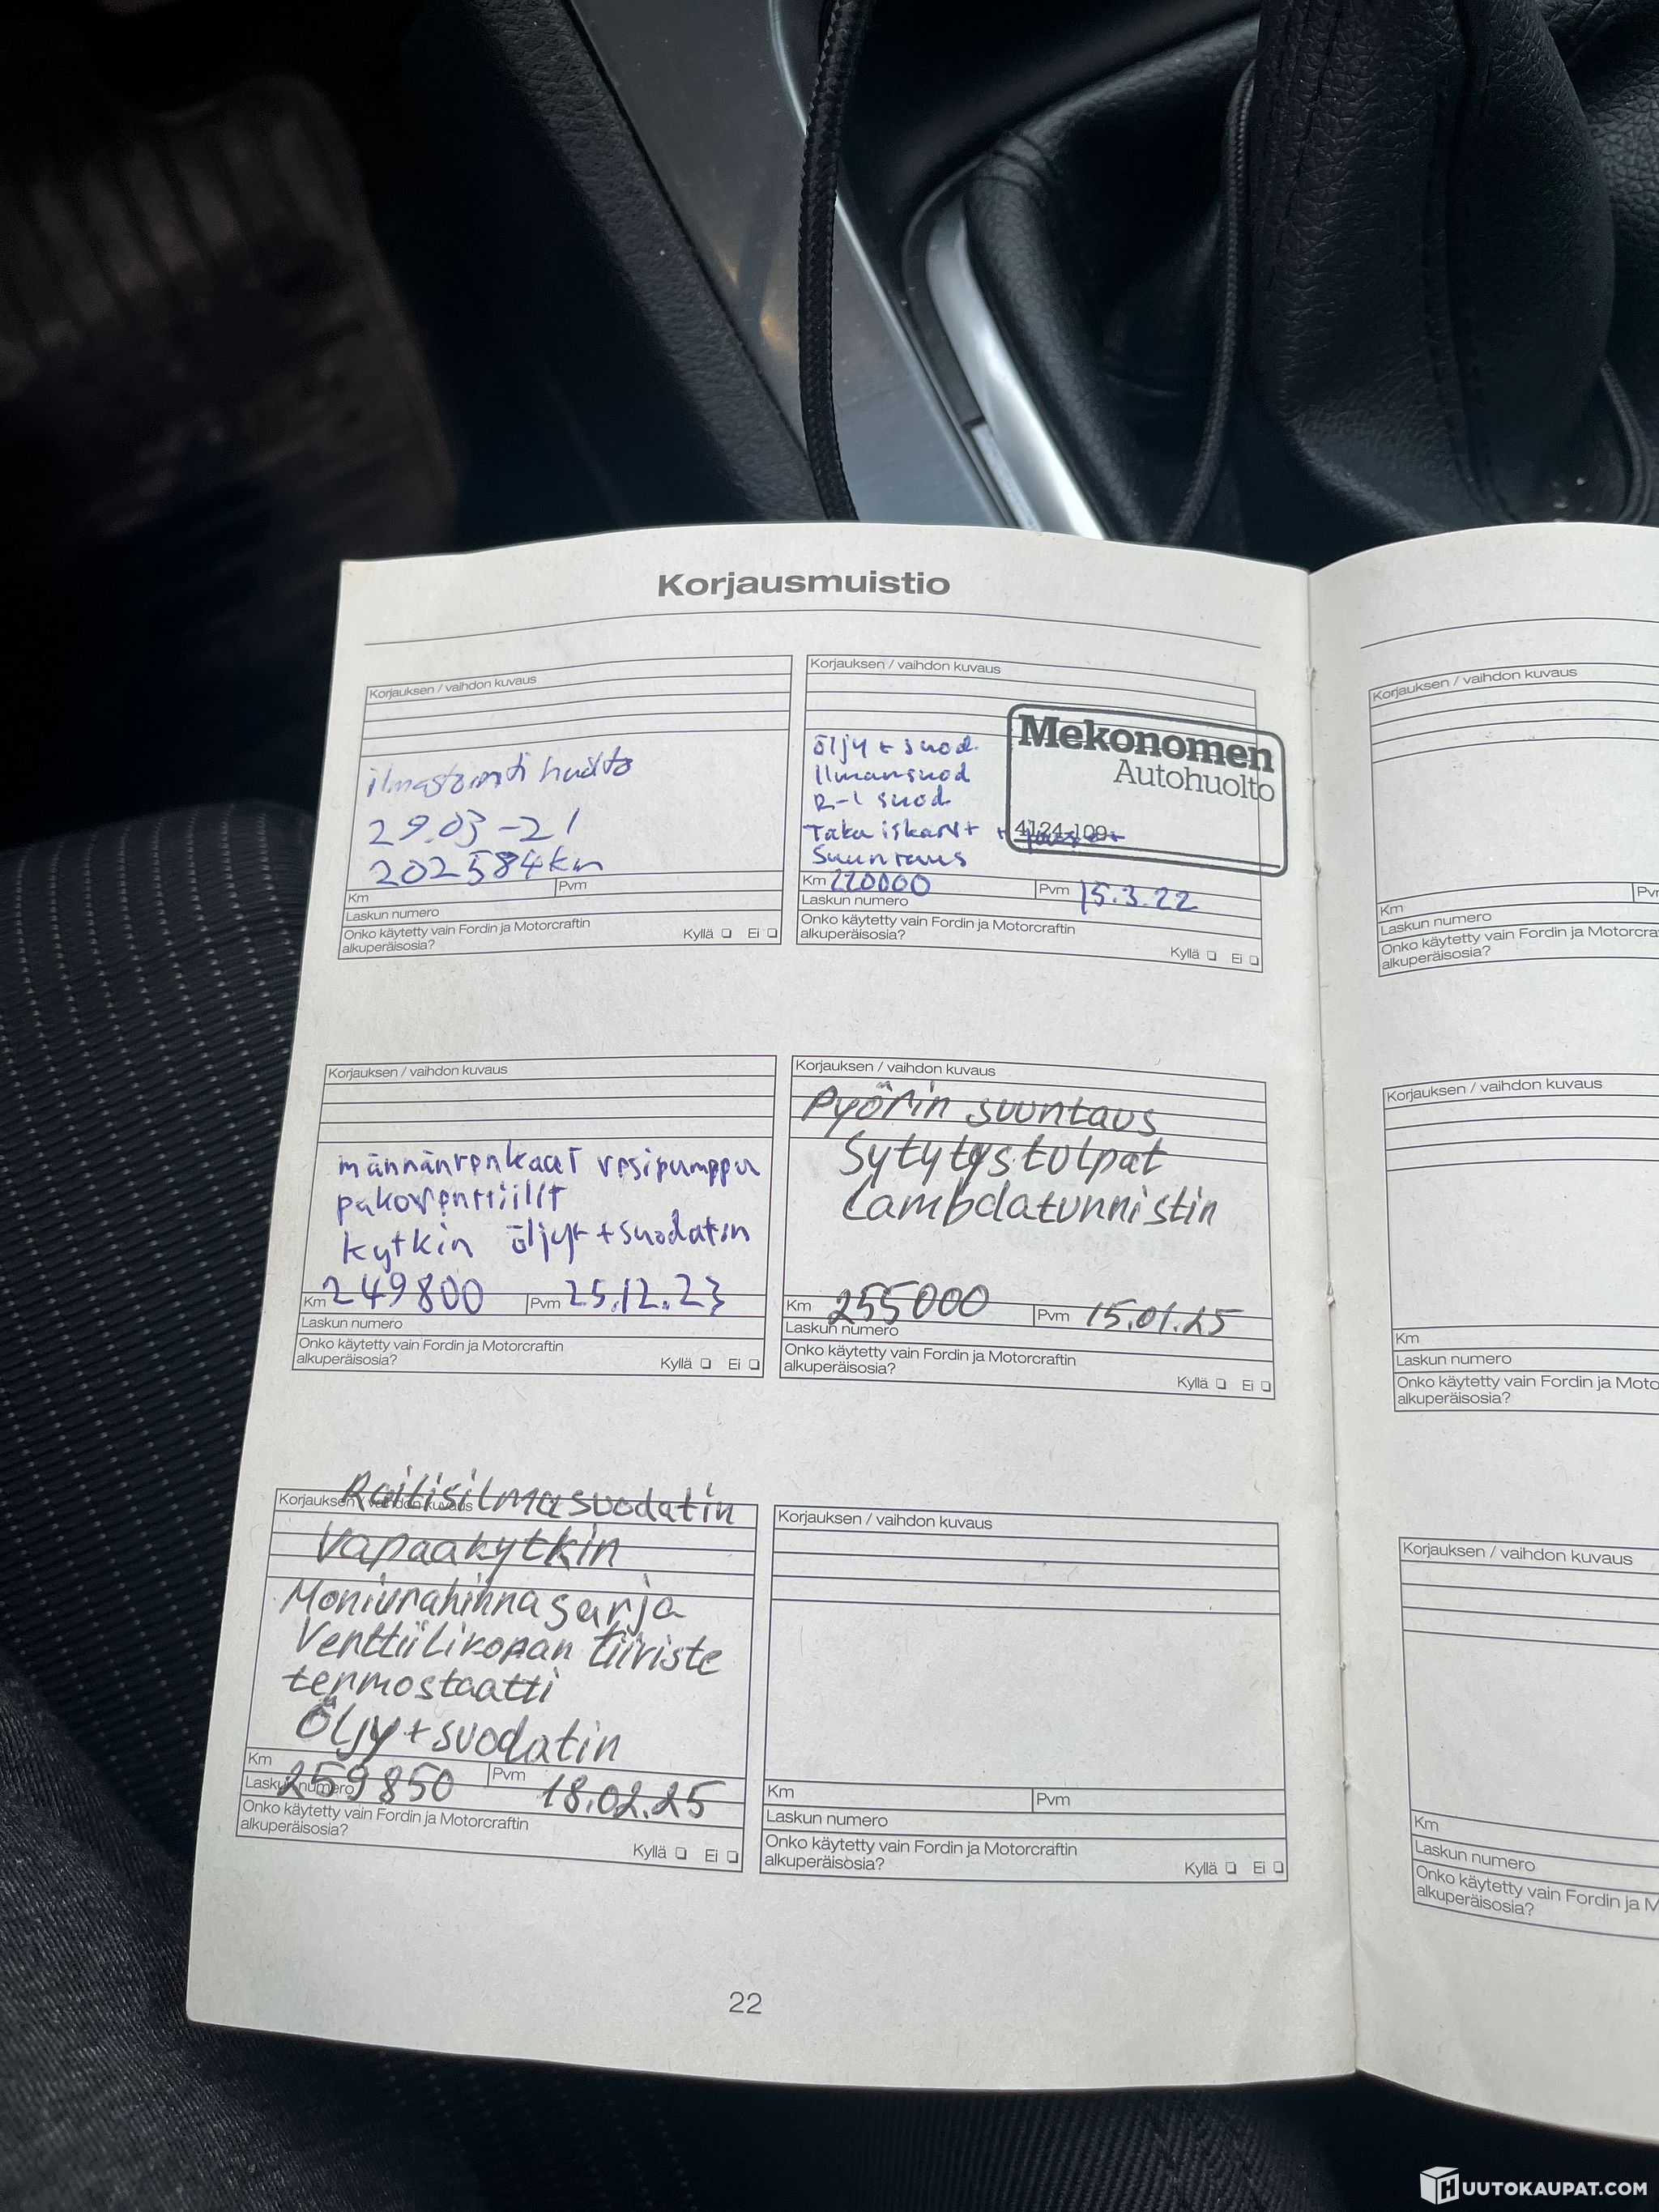 Korjausmuistio
Korjauksen / vaihdon kuvaus
ilmastointi huolto
29.03-21
202584km
Km
Pvm
Laskun numero
Onko käytetty vain Fordin ja Motorcraftin
alkuperäisosia?
Kyllä
Ei
Korjauksen / vaihdon kuvaus
öljy + suod.
Ilmansuod
R-i suod.
Taka iskarit +
Suuntaus
Mekonomen
Autohuolto
4124-109
Km 220000
Pvm 15.3.22
Laskun numero
Onko käytetty vain Fordin ja Motorcraftin
alkuperäisosia?
Kyllä
Ei
Korjauksen / vaihdon kuvaus
männänrenkaat vesipumppu
pakoventtiilit
kytkin öljyt + suodatin
Km 249800
Pvm 25.12.23
Laskun numero
Onko käytetty vain Fordin ja Motorcraftin
alkuperäisosia?
Kyllä
Ei
Korjauksen / vaihdon kuvaus
Pyörin suuntaus
Sytytystulpat
Lambdatunnistin
Km 255000
Pvm 15.01.25
Laskun numero
Onko käytetty vain Fordin ja Motorcraftin
alkuperäisosia?
Kyllä
Ei
Raitisilmasuodatin
Korjauksen / vaihdon kuvaus
Vapaakytkin
Moniurahihnasarja
Venttiilikopan tiiviste
termostaatti
Öljy + suodatin
Km 259850
Pvm 18.02.25
Laskun numero
Onko käytetty vain Fordin ja Motorcraftin
alkuperäisosia?
Kyllä
Ei
Korjauksen / vaihdon kuvaus
Km
Pvm
Laskun numero
Onko käytetty vain Fordin ja Motorcraftin
alkuperäisosia?
Kyllä
Ei
22
Korjauksen / vaihdon kuvaus
Km
Pv
Laskun numero
Onko käytetty vain Fordin ja Motorcra
alkuperäisosia?
Korjauksen / vaihdon kuvaus
Km
Laskun numero
Onko käytetty vain Fordin ja Moto
alkuperäisosia?
Korjauksen / vaihdon kuvaus
Km
Laskun numero
Onko käytetty vain Fordin ja M
alkuperäisosia?
HUUTOKAUPAT.COM